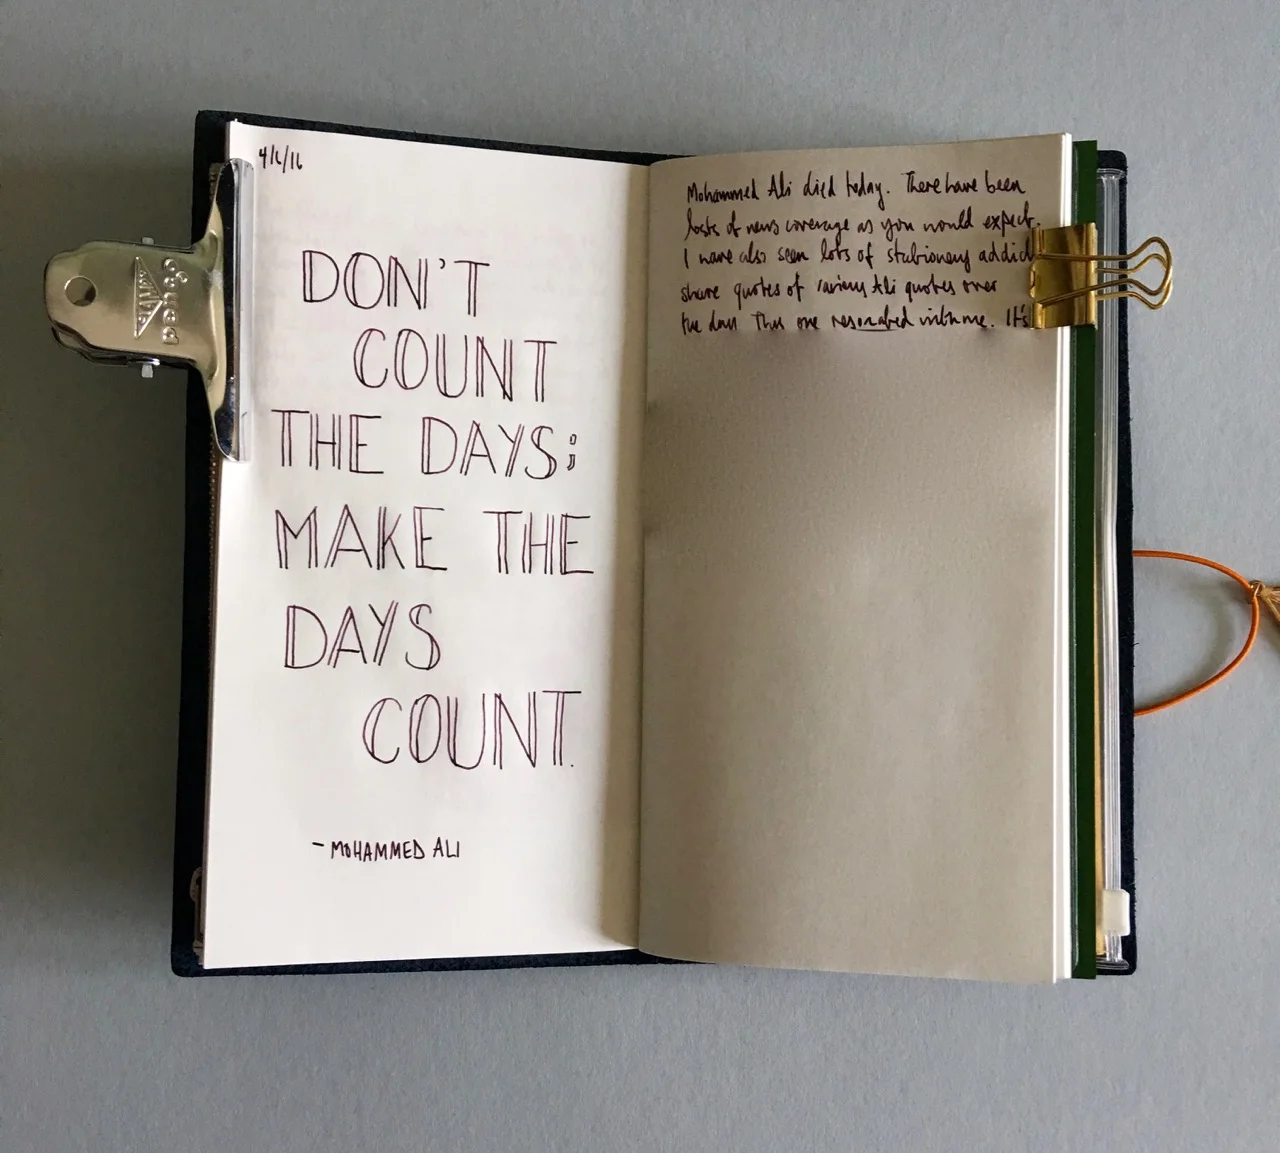 4/6/16
DON'T
COUNT
THE DAYS;
MAKE THE
DAYS
COUNT.
- MOHAMMED ALI
Mohammed Ali died today. There have been
lots of news coverage as you would expect.
I have also seen lots of stationery addic
share quotes of various Ali quotes over
the days This one resonated with me. It's
penco